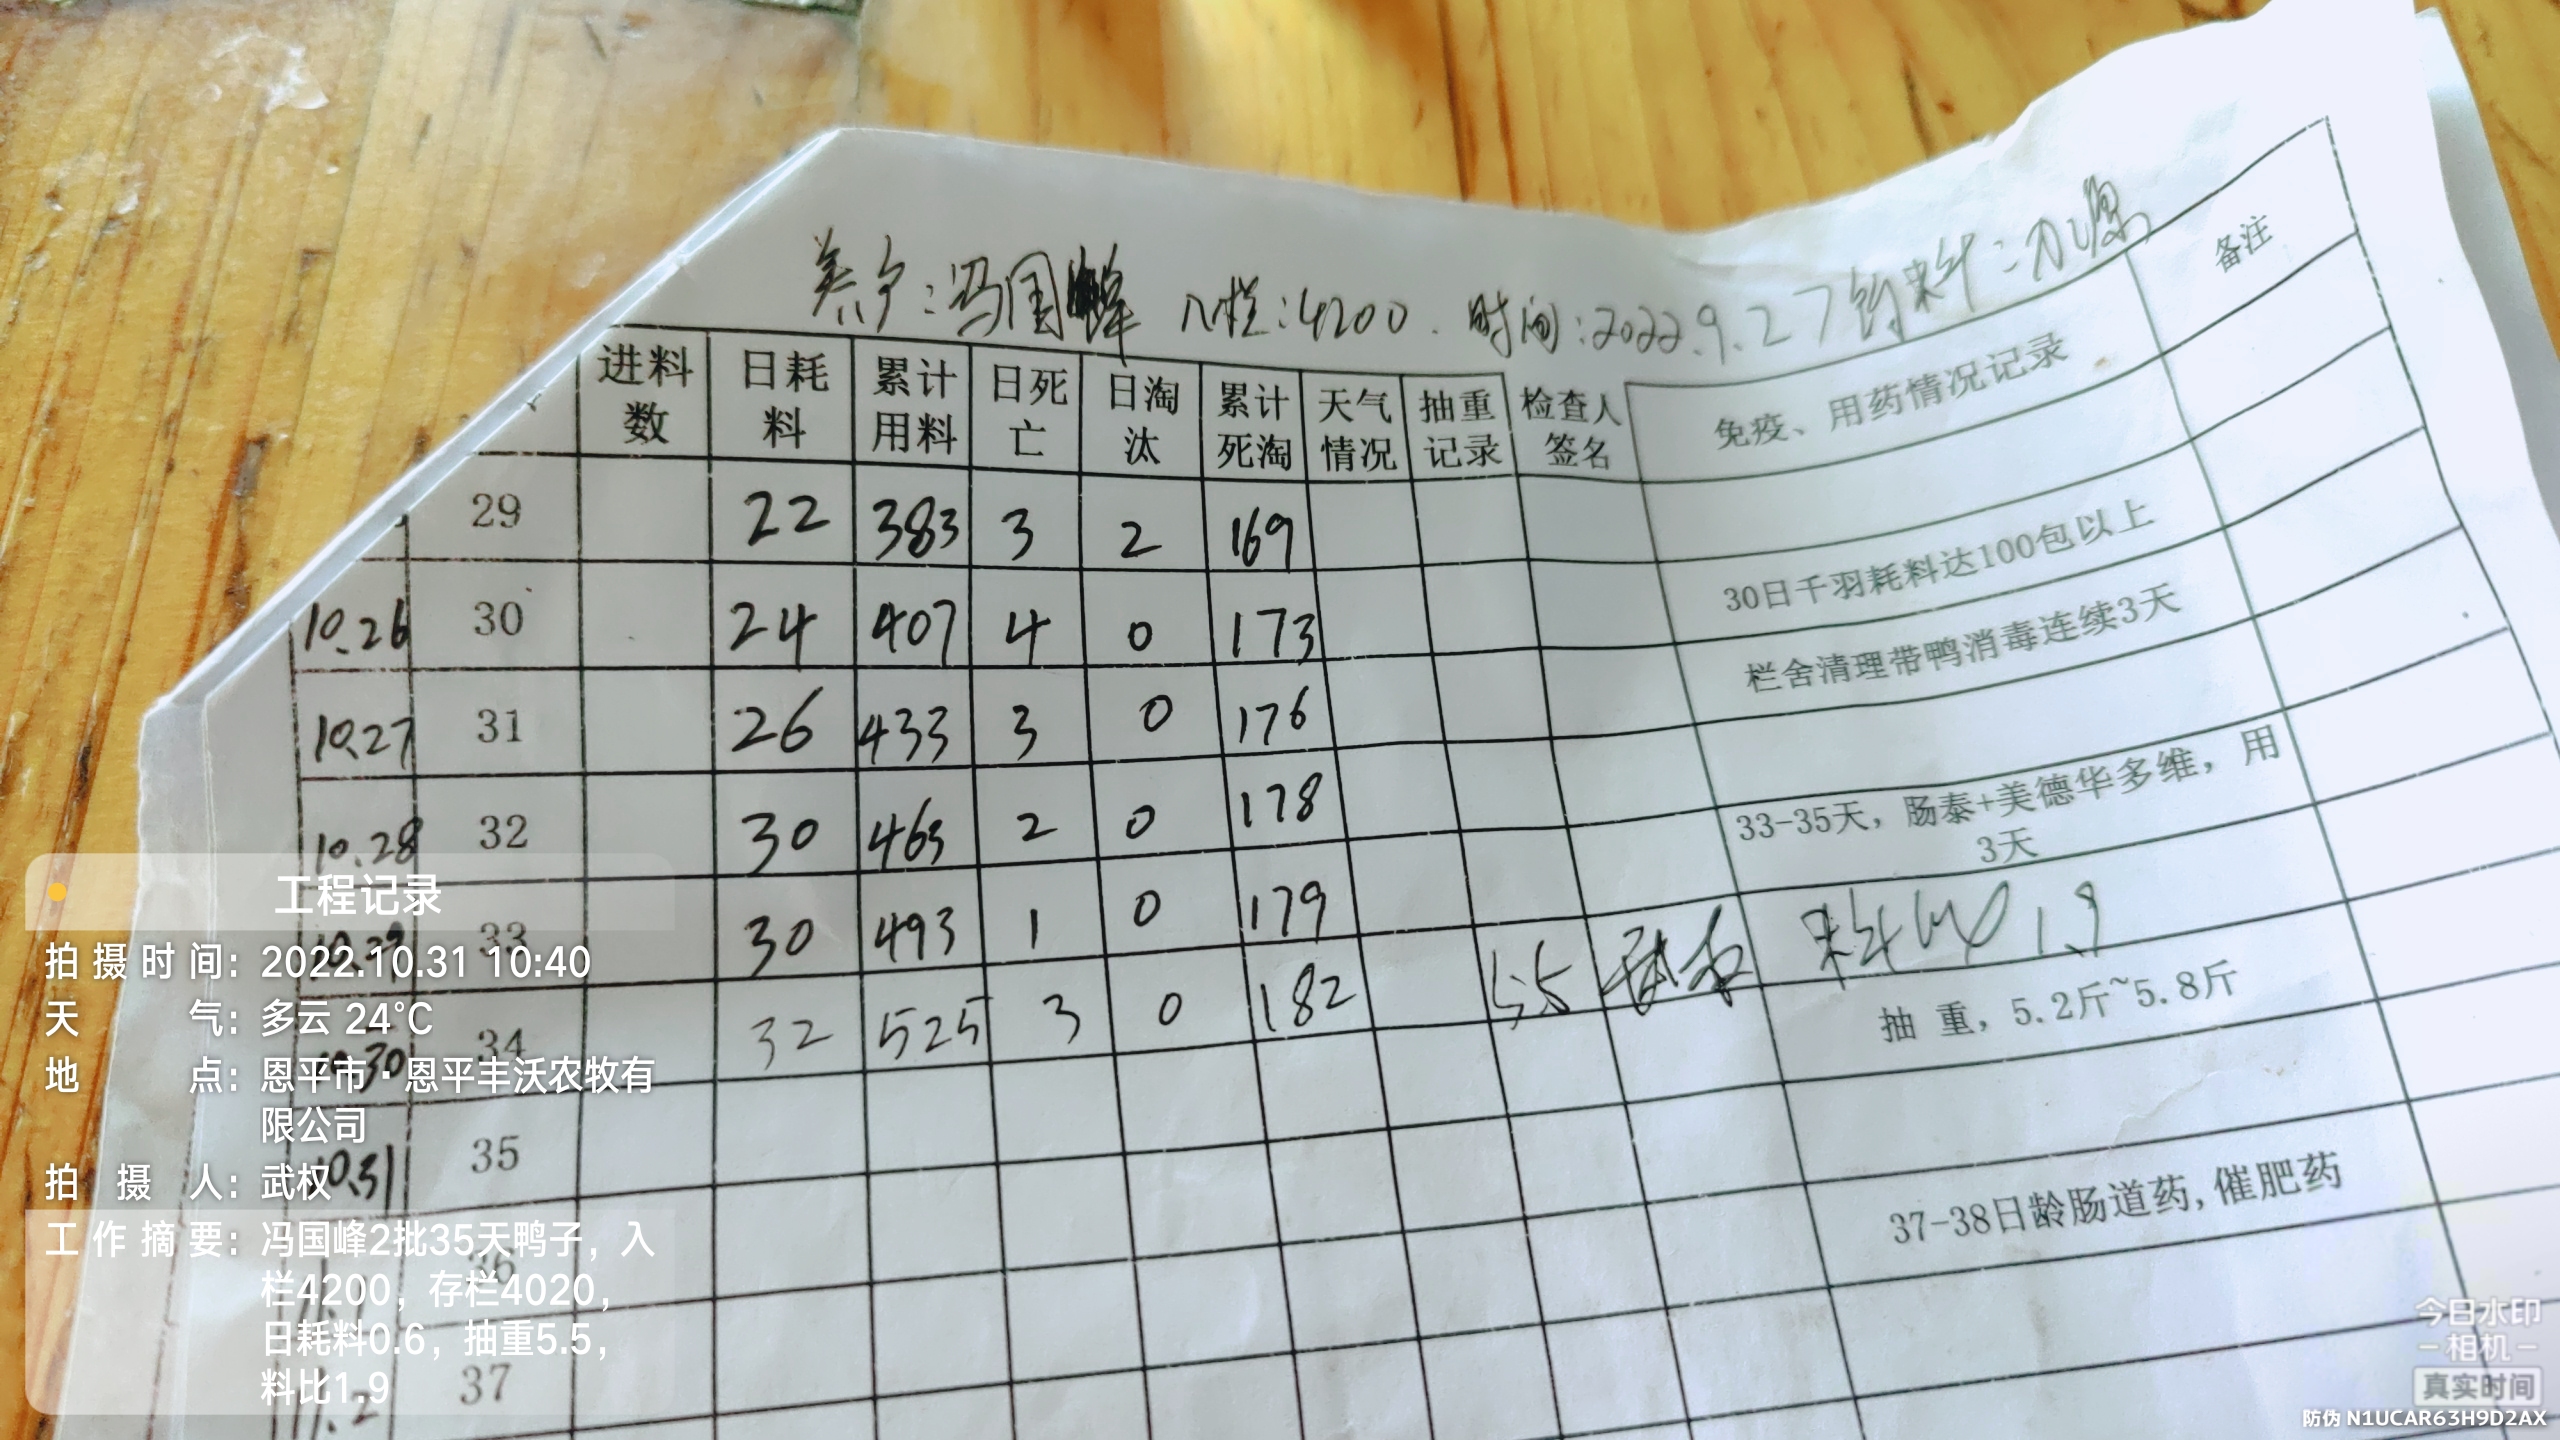 养户:冯国峰 入栏:4200. 时间:2022.9.27 饲料:
进料数 日耗料 累计用料 日死亡 日淘汰 累计死淘 天气情况 抽重记录 检查人签名 免疫、用药情况记录 备注
29 22 383 3 2 169
10.26 30 24 407 4 0 173 30日千羽耗料达100包以上
10.27 31 26 433 3 0 176 栏舍清理带鸭消毒连续3天
10.28 32 30 463 2 0 178
10.29 33 30 493 1 0 179 33-35天，肠泰+美德华多维，用3天
10.30 34 32 525 3 0 182 5.5 武权 料比1.9
抽 重，5.2斤~5.8斤
10.31 35
36
37-38日龄肠道药,催肥药
11.2 37
工程记录
拍摄时间：2022.10.31 10:40
天气：多云 24℃
地点：恩平市·恩平丰沃农牧有
限公司
拍摄人：武权
工作摘要：冯国峰2批35天鸭子，入
栏4200，存栏4020，
日耗料0.6，抽重5.5，
料比1.9
今日水印
相机
真实时间
防伪 N1UCAR63H9D2AX